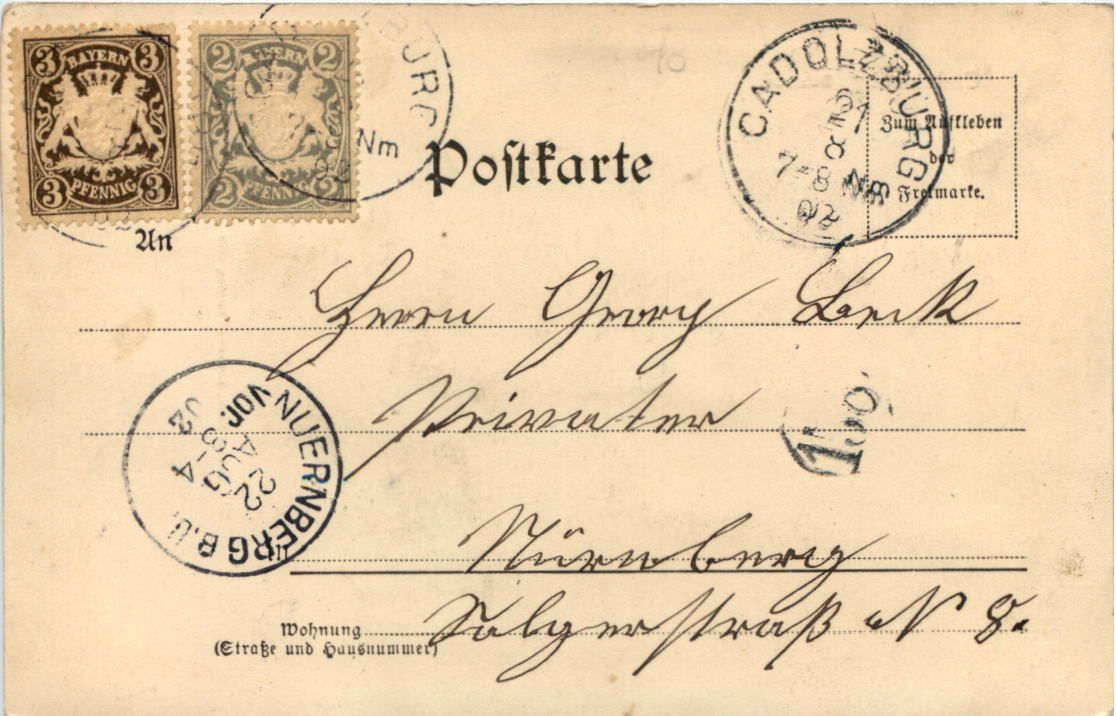 3 BAYERN 3
3 PFENNIG 3
2 BAYERN 2
2 PFENNIG 2
BURG
Nm
Postkarte
CADOLZBURG
8
7-8 Nm
02
Zum Aufkleben
der
Freimarke.
An
Herrn Georg Beck
Privatier
NUERNBERG B.U.
Vor. 3-4
22 AUG 02
Nürnberg
Wohnung
(Straße und Hausnummer)
Salgerstraß N 8.